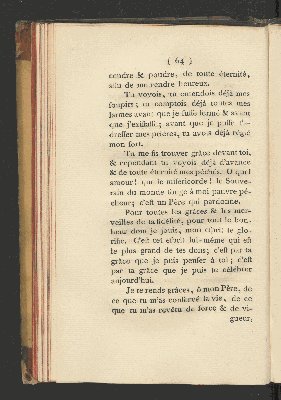 ( 64 )
cendre & poudre, de toute éternité,
afin de me rendre heureux.
Tu voyois, tu entendois déjà mes
soupirs; tu comptois déjà toutes mes
larmes avant que je fusse formé & avant
que j'existasse; avant que je pusse t'a-
dresser mes prieres, tu avois déjà réglé
mon sort.
Tu me fis trouver grâce devant toi,
& cependant tu voyois déjà d'avance
& de toute éternité mes péchés. O quel
amour! que le miséricorde! le Souve-
rain du monde songe à moi pauvre pé-
cheur; c'est un Père qui pardonne.
Pour toutes les grâces & les mer-
veilles de ta fidélité, pour tout le bon-
heur dont je jouis, mon esprit te glo-
rifie. C'est cet esprit lui-même qui est
le plus grand de tes dons; c'est par ta
grâce que je puis penser à toi; c'est
par ta grâce que je puis te célébrer
aujourd'hui.
Je te rends grâces, ô mon Père, de
ce que tu m'as conservé la vie, de ce
que tu m'as revêtu de force & de vi-
gueur,